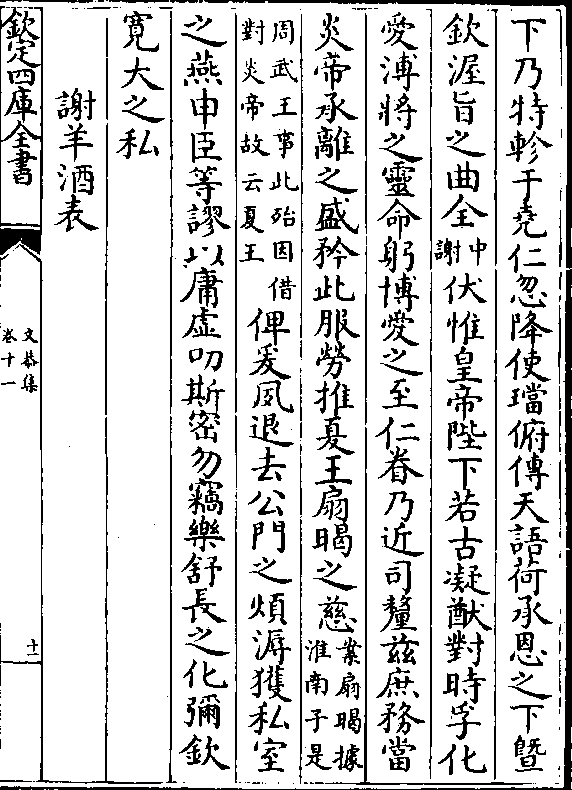 下乃特軫于堯仁忽降使璫俯傳天語荷承恩之下曁
欽渥旨之曲全中謝伏惟皇帝陛下若古凝猷對時孚化
愛溥將之靈命躬博愛之至仁眷乃近司釐兹庶務當
炎帝承離之盛矜此服勞推夏王扇暍之慈案扇暍據淮南子是
周武王事此殆因借對炎帝故云夏王俾爰夙退去公門之煩溽獲私室
之燕申臣等謬以庸虛叨斯密勿竊樂舒長之化彌欽
寛大之私
謝羊酒表
欽定四庫全書
文恭集
卷十一
十一